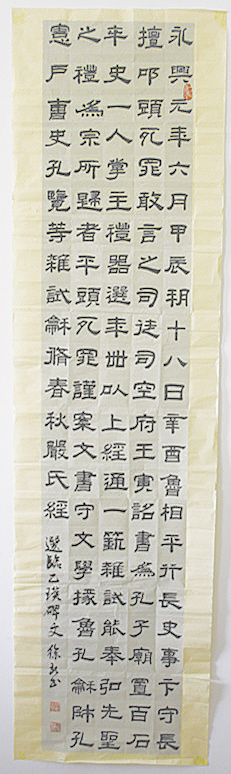 永興元年六月甲辰朔十八日辛酉魯相平行長史事卞守長
擅叩頭死罪敢言之司徒司空府壬寅詔書為孔子廟置百石
卒史一人掌主禮器選年卌以上經通一藝雜試能奉弘先聖
之禮為宗所歸者平頭死罪謹案文書守文學掾魯孔龢師孔
憲戶曹史孔覽等雜試龢脩春秋嚴氏經
選臨乙瑛碑文 徐 書